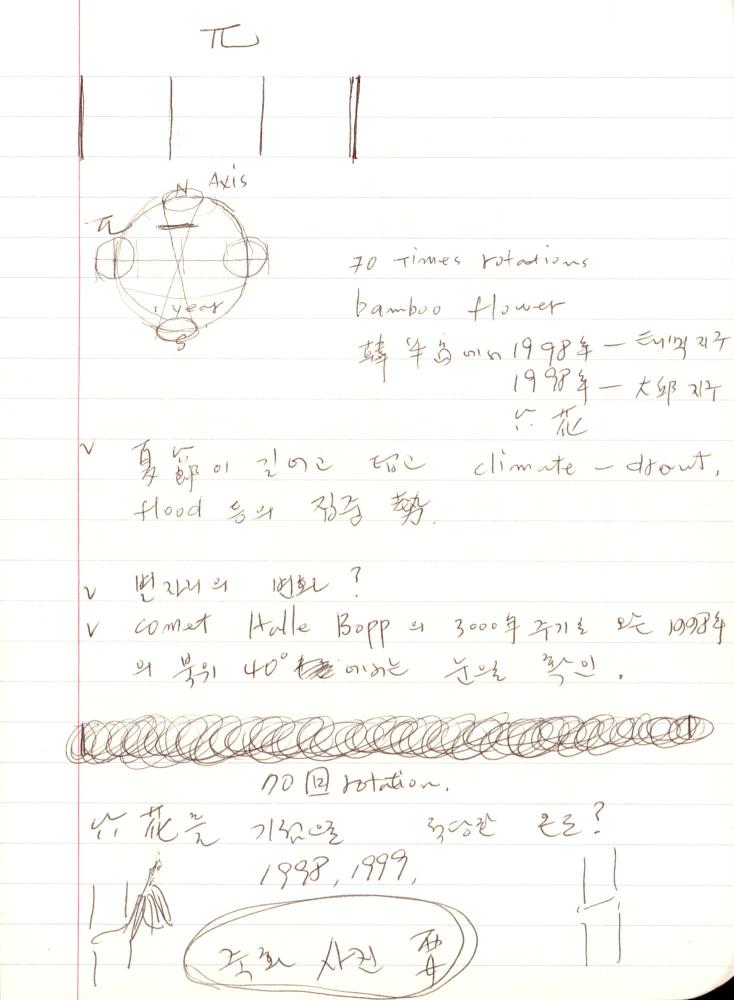 π
N Axis
π
1 year
S
70 Times rotations
bamboo flower
韓半島에서 1998年 — 태백지구
1998年 — 大邱지구
竹花
夏節이 길어고 덥고 climate - drout,
flood 등의 집중 勢.
별자리의 변화?
comet Halle Bopp의 3000年 주기로 오는 1998年
의 북위 40° 에서는 눈으로 확인.
70 回 rotation.
竹花를 기점으로 적당한 온도?
1998, 1999,
죽화 사진 要